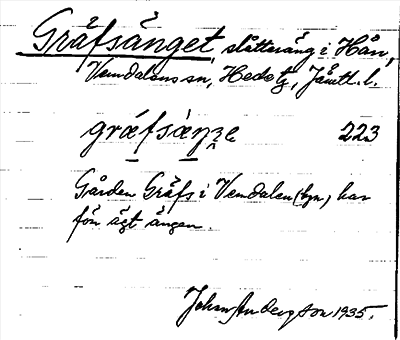 Gräfsänget, slåtteräng i Hån,
Vemdalens sn, Hede tg, Jämtl. l.
græfsæŋʒe 223
Gården Gräfs i Vemdalen (byn) har
förr ägt ängen.
Johan Anderson 1935.